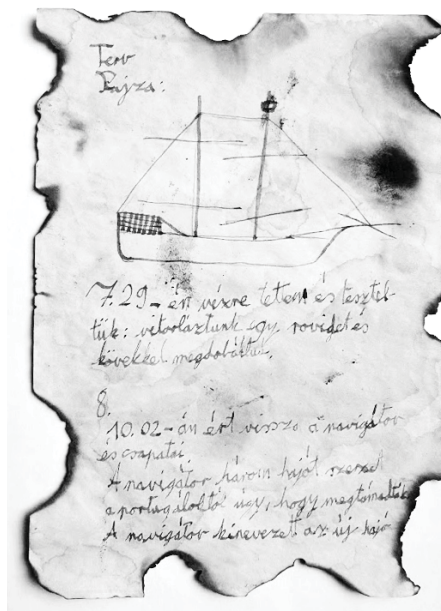 Terv
Rajza:
7.29-én vízre tettem és tesztel-
tük: vitorláztunk egy rövidet és
kövekkel megdobáltuk.
8.
10.02-án ért vissza a navigátor
és csapatai.
A navigátor három hajót szerzett
a portugáloktól úgy, hogy megtámadták
A navigátor kinevezett az új hajó